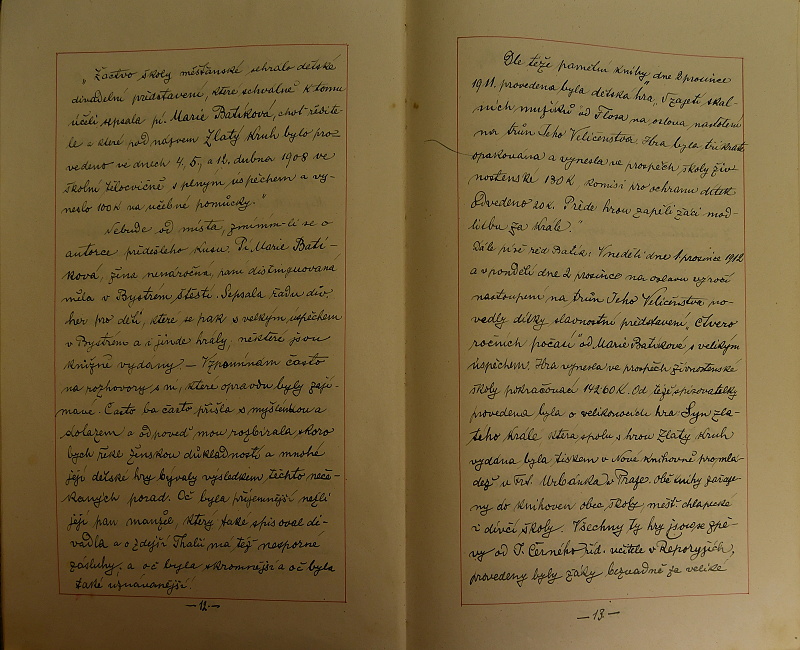 „Žactvo školy měšťanské sehrálo dětské
divadelní představení, které schválně k tomu
účeli sepsala pí. Marie Baťková, choť ředite-
le a které pod názvem Zlatý kruh bylo pro-
vedeno ve dnech 4, 5, a 16. dubna 1908 ve
školní tělocvičně s plným úspěchem a vy-
neslo 100 K na učebné pomůcky."
Nebude od místa, zmíním-li se o
autorce předešlého kusu. Pí. Marie Baťí-
ková, žena nenáročná, paní distinguovaná
měla v Bystrém štěstí. Sepsala řadu div.
her pro děti, které se pak s velkým úspěchem
v Bystrém a i jinde hrály, některé jsou
knižně vydány. – Vzpomínám často
na rozhovory s ní, které opravdu byly zají-
mavé. Často ba často přišla s myšlenkou a
dotazem a odpověď mou rozbírala skoro
bych řekl ženskou důkladností a mnohé
její dětské hry bývaly výsledkem těchto neče-
kaných porad. Oč byla příjemnější nežli
její pan manžel, který také spisoval di-
vadla a o zdejší Thalii má též nesporné
zásluhy, a oč byla skromnější a oč byla
také uznávanější.
– 12. –
Dle téže pamětní knihy „dne 2 prosince
1911. provedena byla dětská hra „V zajetí skal-
ních mužíků" od Flosa na oslavu nastolení
na trůn Jeho Veličenstva. Hra byla třikrát
opakována a vynesla ve prospěch školy živ-
nostenské 130 K, komisi pro ochranu dítek
odvedeno 20 K. Přede hrou zapěli žáci mod-
litbu za krále."
Dále píše řed. Batík: V neděli dne 1 prosince 1912
a v pondělí dne 2 prosince na oslavu výročí
nastoupení na trůn Jeho Veličenstva po-
vedly dítky slavnostní představení „Čtvero
ročních počasí" od Marie Batíkové s velikým
úspěchem. Hra vynesla ve prospěch živnostenské
školy pokračovací 142·60 K. Od téže spisovatelky
provedena byla o velikonocích hra Syn zla-
tého krále, která spolu s hrou Zlatý kruh
vydána byla tiskem v Nové knihovně pro mlá-
dež u Frt. Urbánka v Praze. Obě knihy zařaze-
ny do knihoven obec. školy, měšť. chlapecké
i dívčí školy. Všechny ty hry jsou se zpě-
vy od J. Černého říd. učitele v Řeporyjích,
provedeny byly žáky bezvadně za veliké
– 13. –